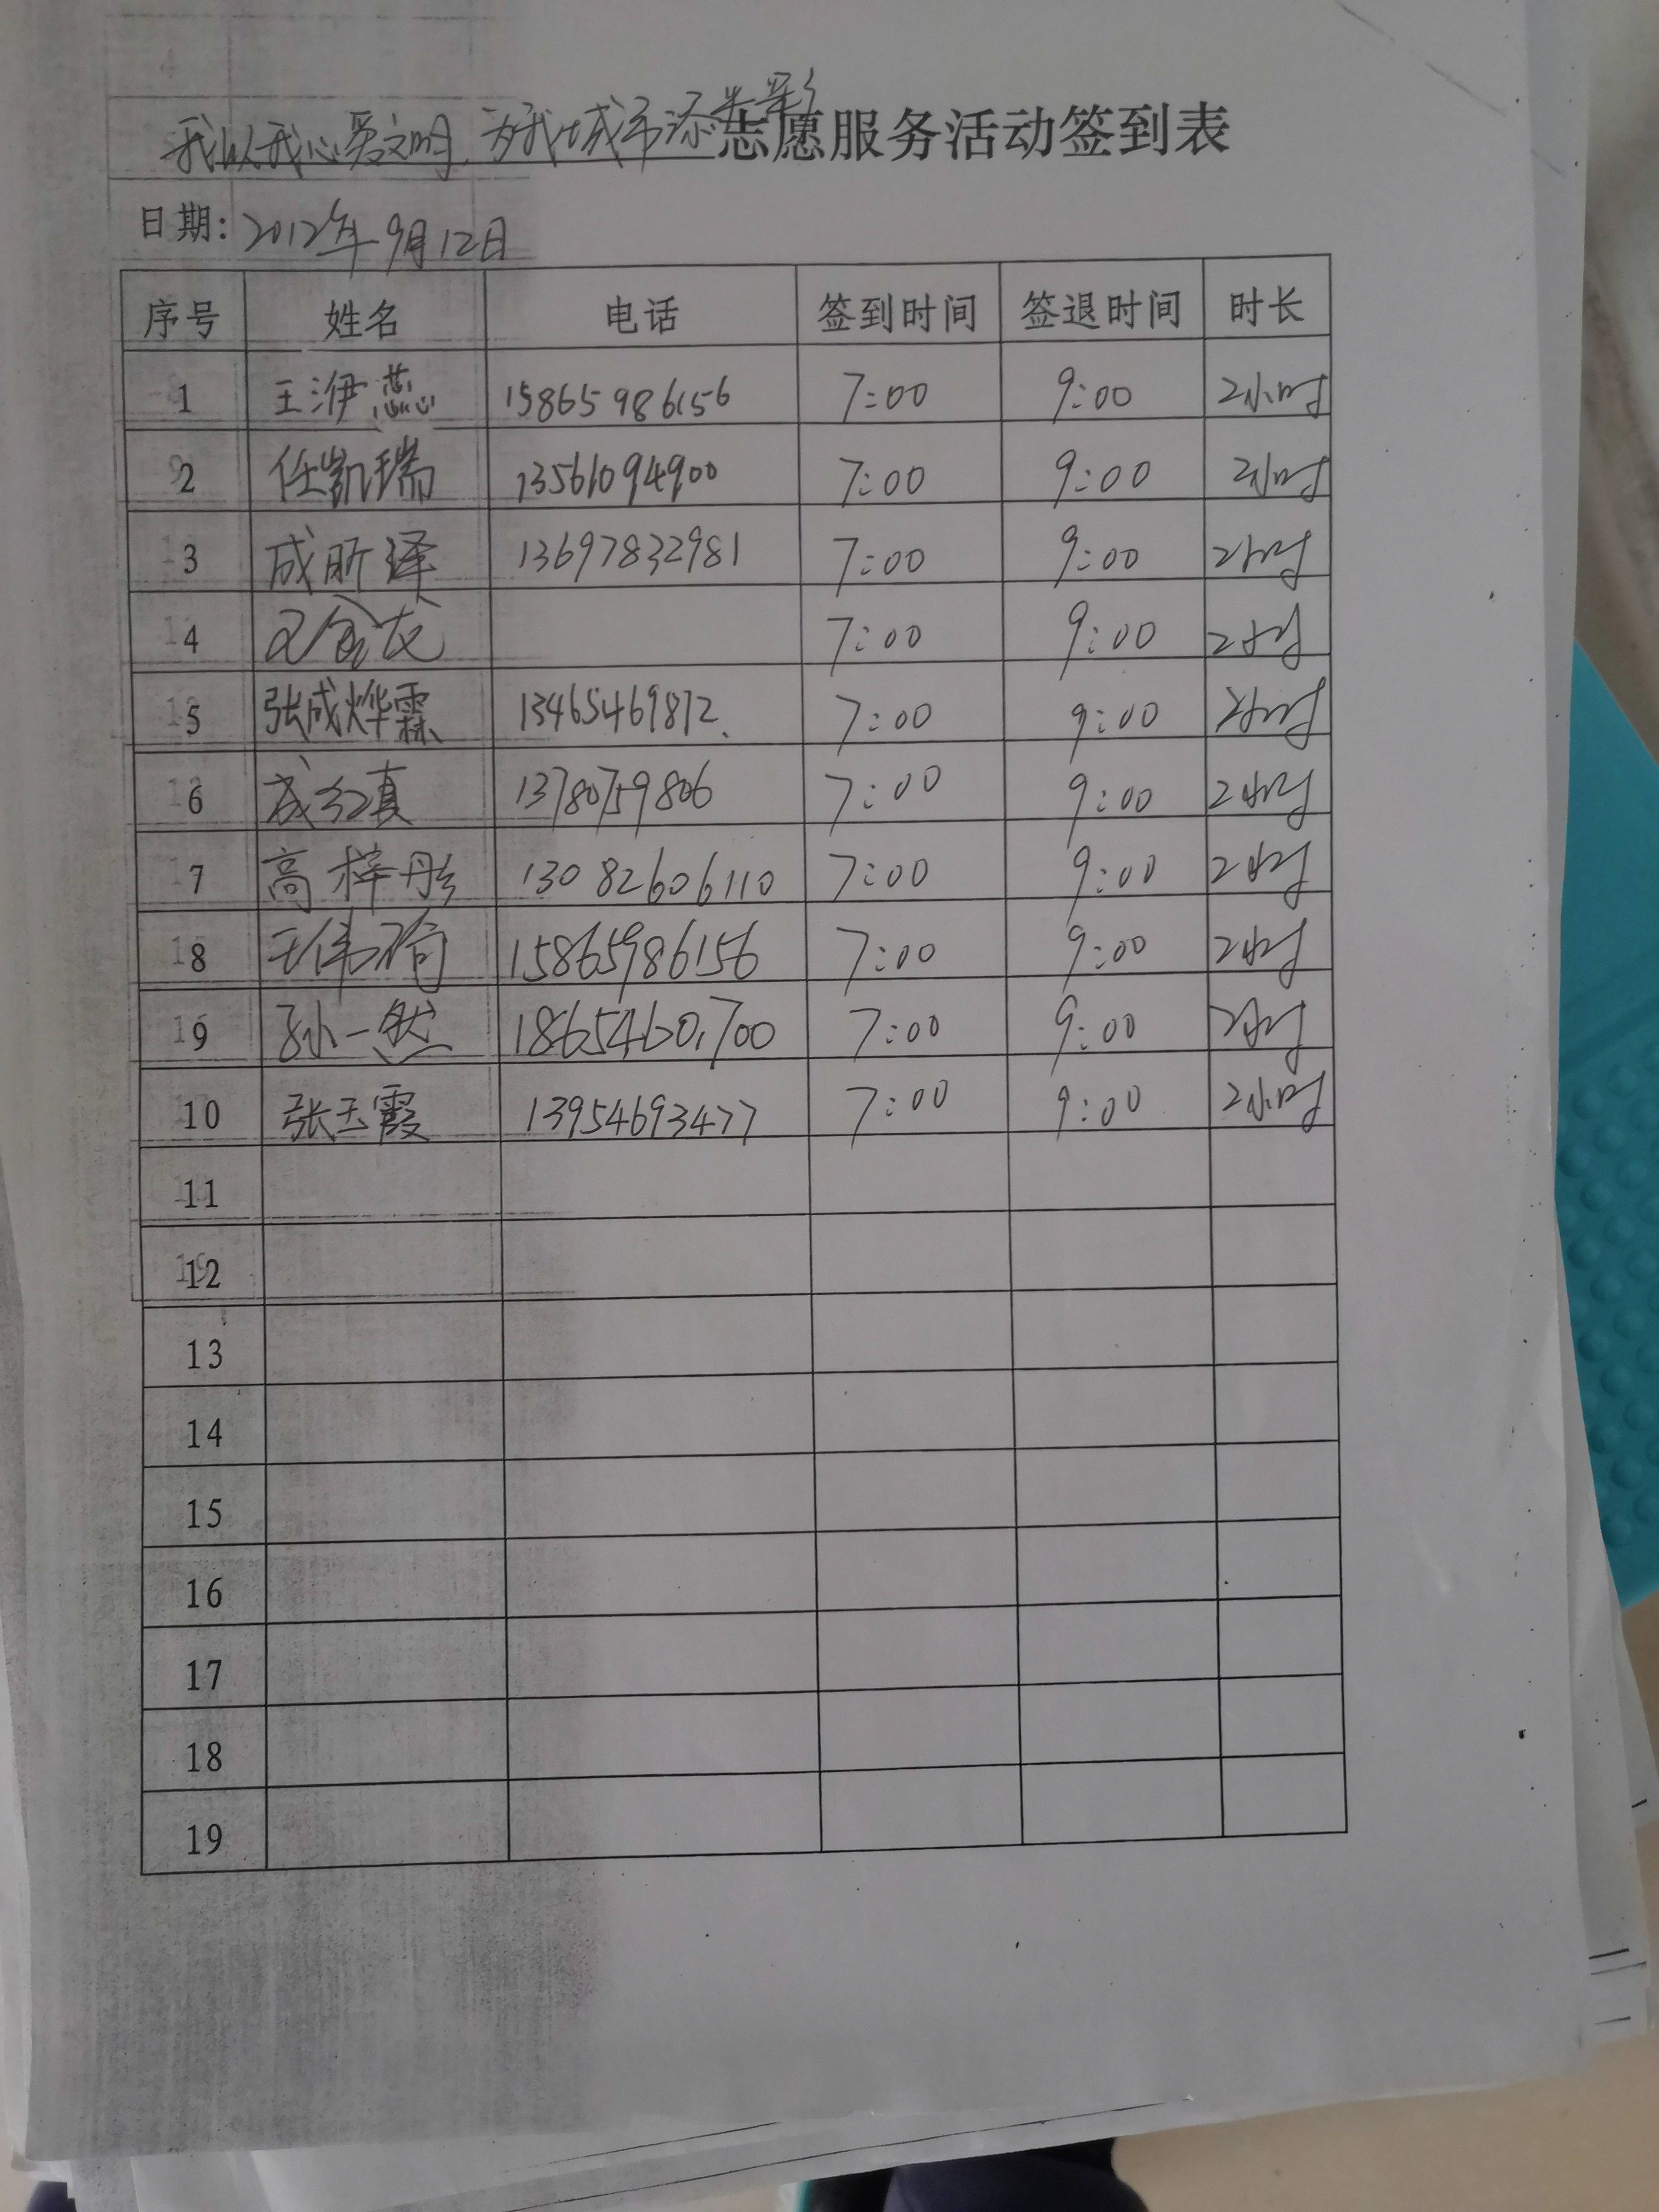 我以我心爱文明,为我城市添光彩志愿服务活动签到表
日期:2012年9月12日
序号 姓名 电话 签到时间 签退时间 时长
1 王洢蕊 15865986156 7:00 9:00 2小时
2 任凯瑞 13561094900 7:00 9:00 2小时
3 成昕泽 13697832981 7:00 9:00 2小时
4 7:00 9:00 2小时
5 张成烨霖 13465469812 7:00 9:00 2小时
6 成红真 13780759806 7:00 9:00 2小时
7 高梓彤 13082606110 7:00 9:00 2小时
8 王伟 15865986156 7:00 9:00 2小时
9 孙一然 18654601700 7:00 9:00 2小时
10 张玉霞 13954693477 7:00 9:00 2小时
11
12
13
14
15
16
17
18
19